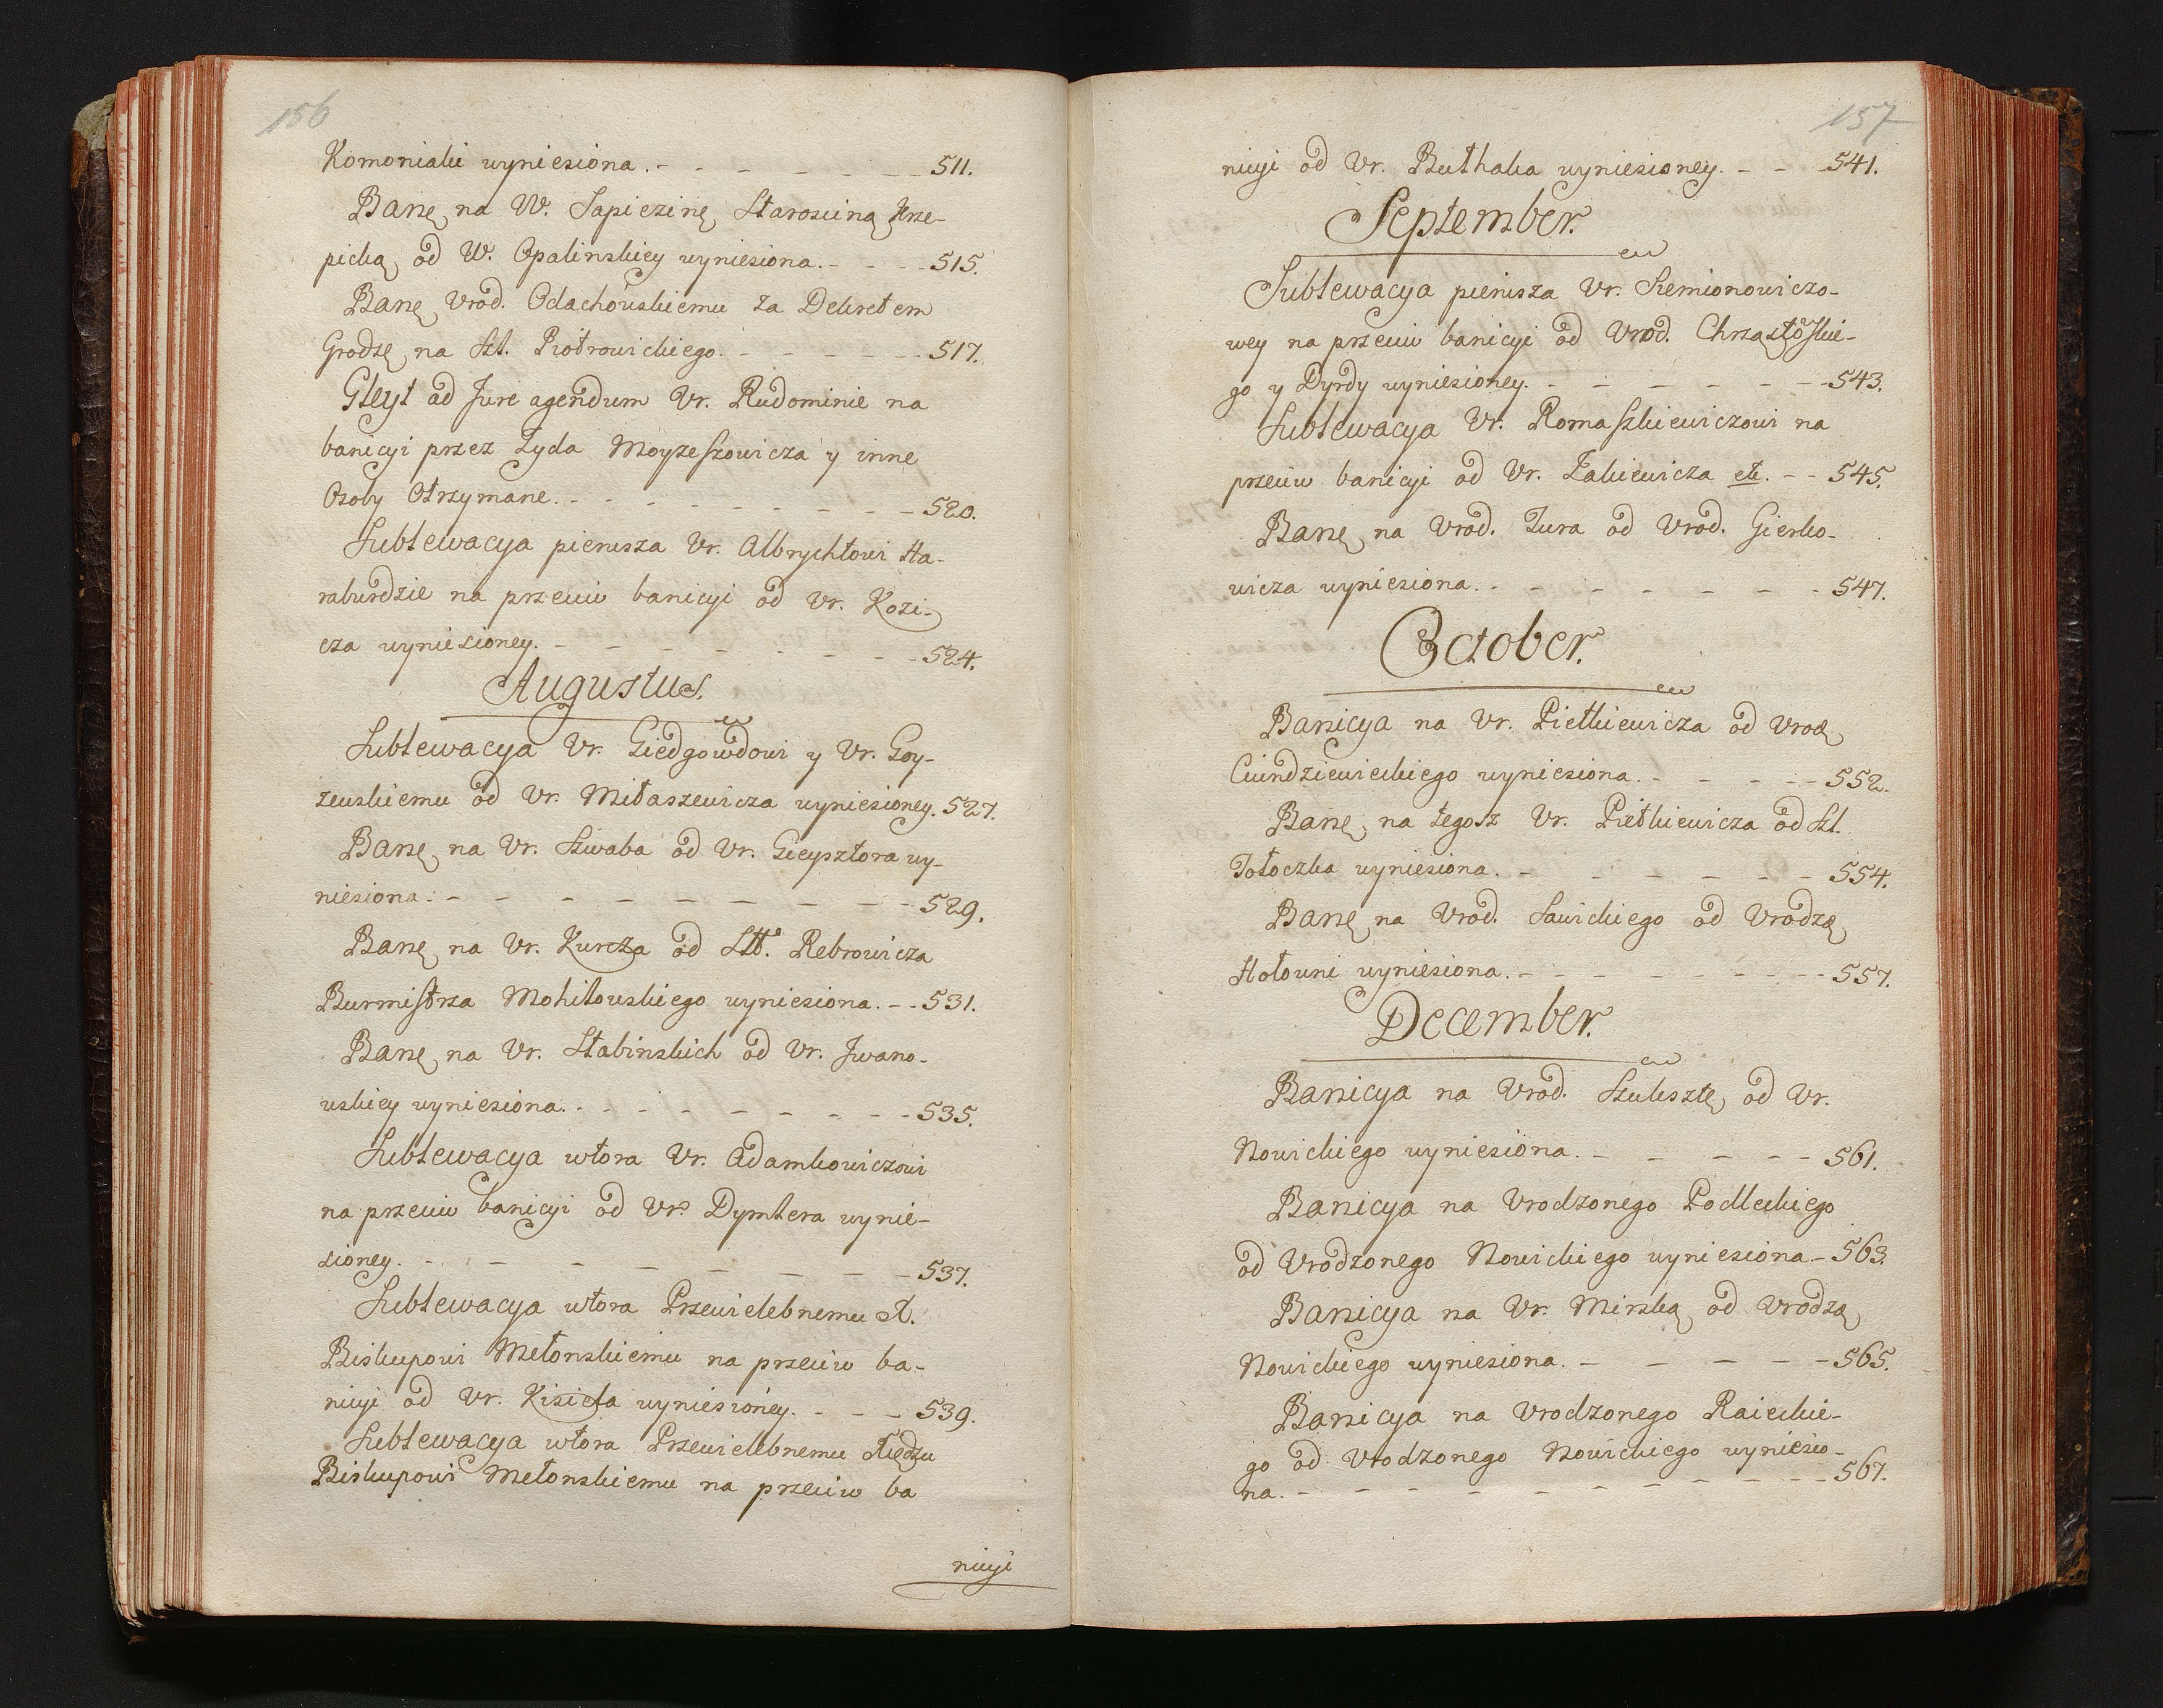 156
Komoniaki wyniesiona. - - - - - - - 511.
Banę na W. Sapiezinę Starosciną Krze-
picką od W. Opalinskiey wyniesiona. - - - 515.
Banę Vrod. Odachowskiemu za Dekretem
Grodzę na Szl. Piotrowickiego. - - - - - 517.
Gleyt ad Jure agendum Vr. Rudominie na
banicyi przez Zyda Moyzeszowicza y inne
Osoby Otrzymane. - - - - - - - - 520.
Sublewacya pierwsza Vr. Albrychtowi Ha-
raburdzie na przeciw banicyi od Vr. Kozi-
cza wyniesioney. - - - - - - - - 524.
Augustus.
Sublewacya Vr. Giedgowdowi y Vr. Gry-
zewskiemu od Vr. Miłaszewicza wyniesioney. 527.
Banę na Vr. Szwaba od Vr. Gieysztora wy-
niesiona. - - - - - - - - - 529.
Banę na Vr. Kurcza od Rebrowicza
Burmistrza Mohilowskiego wyniesiona. - - 531.
Banę na Vr. Stabinskich od Vr. Jwano-
wskiey wyniesiona. - - - - - - - - 535.
Sublewacya wtora Vr. Adamkowiczowi
na przeciw banicyi od Vr. Dymkera wynie-
sioney. - - - - - - - - 537.
Sublewacya wtora Przewielebnemu X.
Biskupowi Metonskiemu na przeciw ba-
nicyi od Vr. Kisiela wyniesioney. - - - 539.
Sublewacya wtora Przewielebnemu Xiędzu
Biskupowi Metonskiemu na przeciw ba
nicyi
157
nicyi od Vr. Buthaka wyniesioney. - - - 541.
September.
Sublewacya pierwsza Vr. Siemionowiczo-
wey na przeciw banicyi od Vrod. Chrząstowskie-
go y Dyrdy wyniesioney. - - - - - - - 543.
Sublewacya Vr. Romaszkiewiczowi na
przeciw banicyi od Vr. Żakiewicza etc. - - 545.
Banę na Vrod. Jura od Vrod. Gierko-
wicza wyniesiona. - - - - - - - - 547.
October.
Banicya na Vr. Pietkiewicza od Vrodz
Cwindziewickiego wyniesiona. - - - - - 552.
Banę na tegosz Vr. Pietkiewicza od Szl.
Tołoczka wyniesiona. - - - - - - 554.
Banę na Vrod. Sawickiego od Vrodzę
Hołowni wyniesiona. - - - - - - - 557.
December.
Banicya na Vrod. Szuksztę od Vr.
Nowickiego wyniesiona. - - - - - 561.
Banicya na Vrodzonego Podleckiego
od Vrodzonego Nowickiego wyniesiona - 563.
Banicya na Vr. Mirską od Vrodzą
Nowickiego wyniesiona. - - - - - 565.
Banicya na Vrodzonego Raieckie-
go od Vrodzonego Nowickiego wyniesio-
na. - - - - - - - - - - 567.